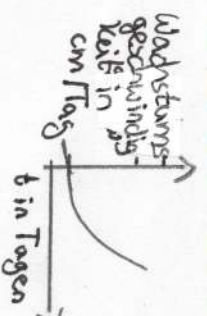 Wachstums-
geschwindig-
keit in
cm/Tag
t in Tagen